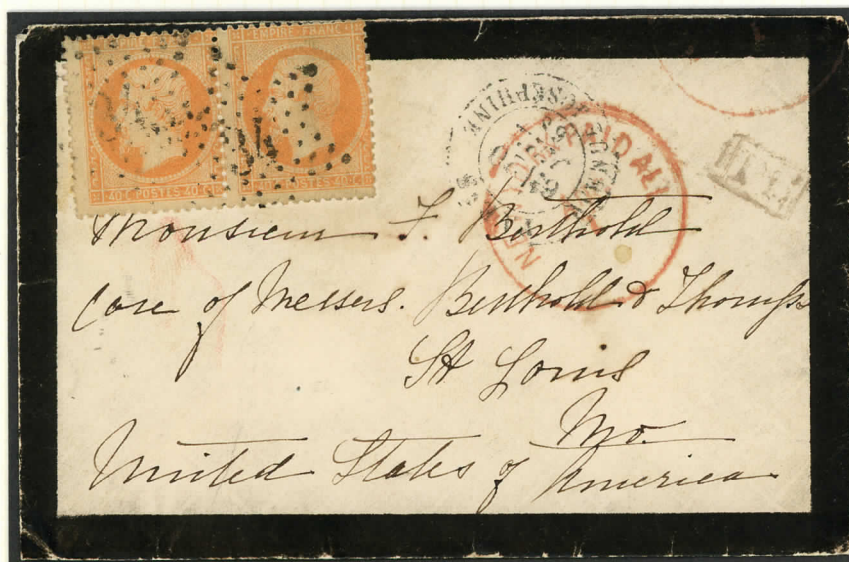 EMPIRE FRANC
EMPIRE FRANC
40 C POSTES 40 C
40 C POSTES 40 C
JOSEPHINE
PAID ALL
P.D.
Monsieur F. Berthold
Care of Messers. Berthold & Thomps
St Louis
Mo.
United States of America